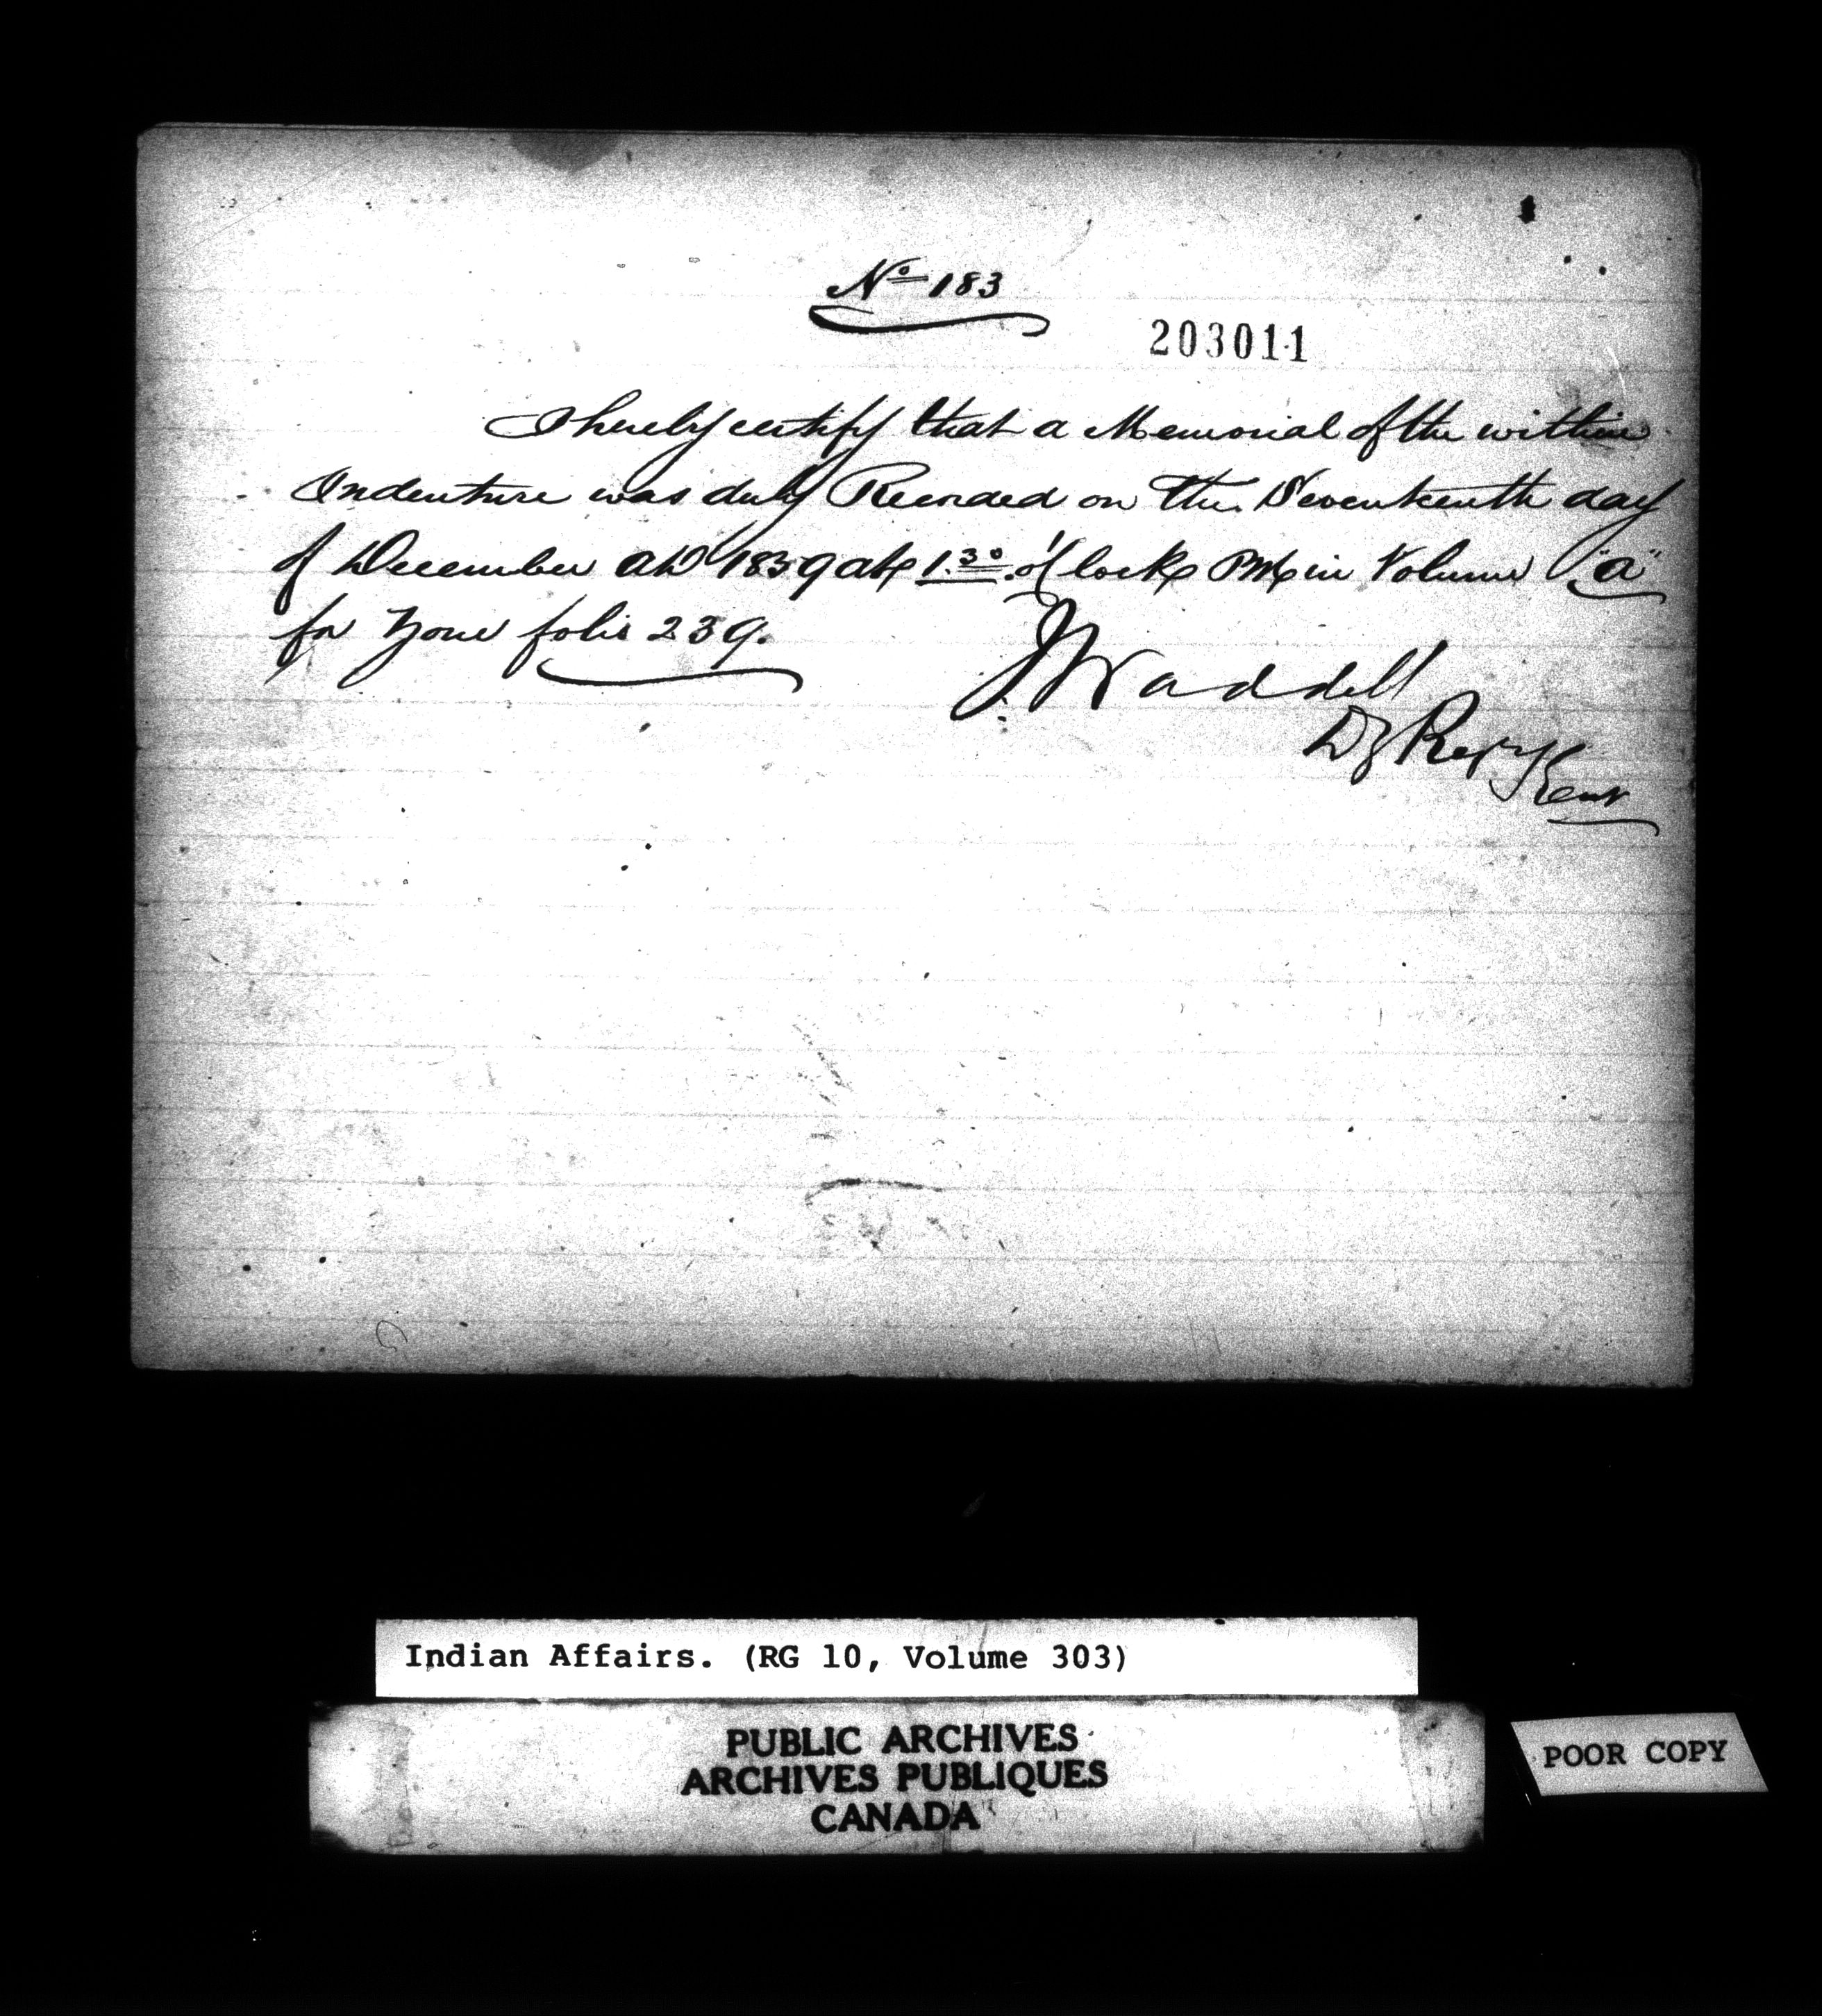 No 183
203011
I hereby certify that a Memorial of the within
Indenture was duly Recorded on the Seventeenth day
of December AD 1859 at 1.30 o'Clock PM in Volume "a"
for Zone folio 239.
J Waddell
Dy Regr Kent
Indian Affairs. (RG 10, Volume 303)
PUBLIC ARCHIVES
ARCHIVES PUBLIQUES
CANADA
POOR COPY